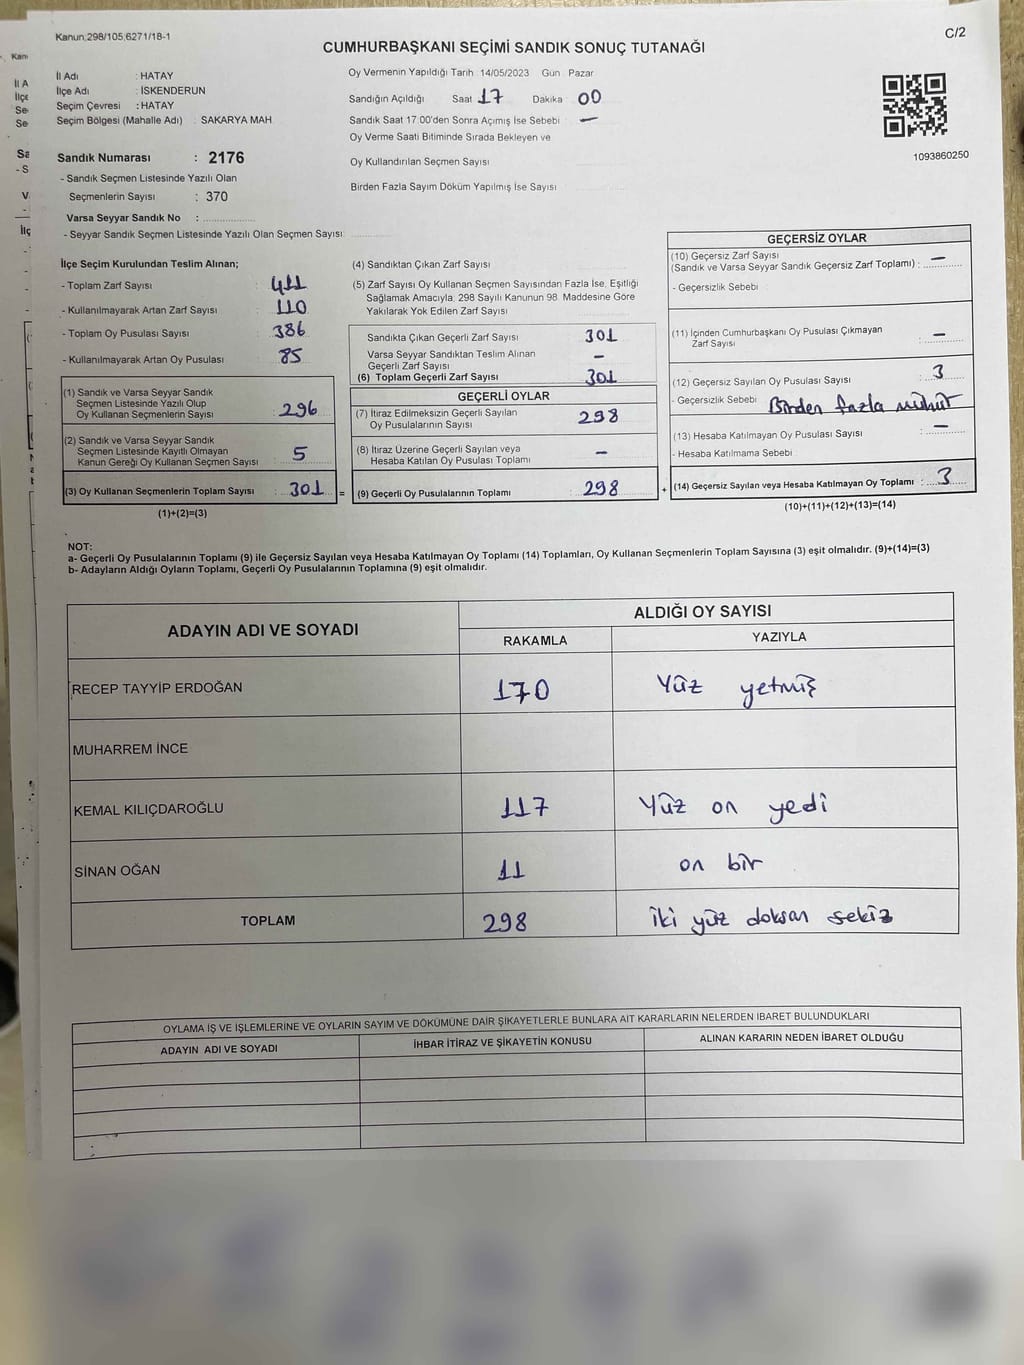 Kanun;298/105;6271/18-1
C/2
CUMHURBAŞKANI SEÇİMİ SANDIK SONUÇ TUTANAĞI
İl Adı : HATAY
İlçe Adı : İSKENDERUN
Seçim Çevresi : HATAY
Seçim Bölgesi (Mahalle Adı) : SAKARYA MAH.
Sandık Numarası : 2176
- Sandık Seçmen Listesinde Yazılı Olan
Seçmenlerin Sayısı : 370
Varsa Seyyar Sandık No :
- Seyyar Sandık Seçmen Listesinde Yazılı Olan Seçmen Sayısı:
Oy Vermenin Yapıldığı Tarih :14/05/2023 Gün : Pazar
Sandığın Açıldığı Saat 17 Dakika 00
Sandık Saat 17:00'den Sonra Açımış İse Sebebi : —
Oy Verme Saati Bitiminde Sırada Bekleyen ve
Oy Kullandırılan Seçmen Sayısı
Birden Fazla Sayım Döküm Yapılmış İse Sayısı
1093860250
İlçe Seçim Kurulundan Teslim Alınan;
- Toplam Zarf Sayısı : 411
- Kullanılmayarak Artan Zarf Sayısı : 110
- Toplam Oy Pusulası Sayısı : 386
- Kullanılmayarak Artan Oy Pusulası : 85
(1) Sandık ve Varsa Seyyar Sandık
Seçmen Listesinde Yazılı Olup
Oy Kullanan Seçmenlerin Sayısı : 296
(2) Sandık ve Varsa Seyyar Sandık
Seçmen Listesinde Kayıtlı Olmayan
Kanun Gereği Oy Kullanan Seçmen Sayısı : 5
(3) Oy Kullanan Seçmenlerin Toplam Sayısı : 301 =
(1)+(2)=(3)
(4) Sandıktan Çıkan Zarf Sayısı
(5) Zarf Sayısı Oy Kullanan Seçmen Sayısından Fazla İse, Eşitliği
Sağlamak Amacıyla, 298 Sayılı Kanunun 98. Maddesine Göre
Yakılarak Yok Edilen Zarf Sayısı
Sandıkta Çıkan Geçerli Zarf Sayısı : 301
Varsa Seyyar Sandıktan Teslim Alınan
Geçerli Zarf Sayısı : —
(6) Toplam Geçerli Zarf Sayısı : 301
GEÇERLİ OYLAR
(7) İtiraz Edilmeksizin Geçerli Sayılan
Oy Pusulalarının Sayısı : 298
(8) İtiraz Üzerine Geçerli Sayılan veya
Hesaba Katılan Oy Pusulası Toplamı : —
(9) Geçerli Oy Pusulalarının Toplamı : 298 +
GEÇERSİZ OYLAR
(10) Geçersiz Zarf Sayısı
(Sandık ve Varsa Seyyar Sandık Geçersiz Zarf Toplamı) : —
- Geçersizlik Sebebi
(11) İçinden Cumhurbaşkanı Oy Pusulası Çıkmayan
Zarf Sayısı : —
(12) Geçersiz Sayılan Oy Pusulası Sayısı : 3
- Geçersizlik Sebebi : Birden fazla mühür
(13) Hesaba Katılmayan Oy Pusulası Sayısı : —
- Hesaba Katılmama Sebebi
(14) Geçersiz Sayılan veya Hesaba Katılmayan Oy Toplamı : 3
(10)+(11)+(12)+(13)=(14)
NOT:
a- Geçerli Oy Pusulalarının Toplamı (9) ile Geçersiz Sayılan veya Hesaba Katılmayan Oy Toplamı (14) Toplamları, Oy Kullanan Seçmenlerin Toplam Sayısına (3) eşit olmalıdır. (9)+(14)=(3)
b- Adayların Aldığı Oyların Toplamı, Geçerli Oy Pusulalarının Toplamına (9) eşit olmalıdır.
ADAYIN ADI VE SOYADI ALDIĞI OY SAYISI
RAKAMLA YAZIYLA
RECEP TAYYİP ERDOĞAN 170 Yüz yetmiş
MUHARREM İNCE
KEMAL KILIÇDAROĞLU 117 Yüz on yedi
SİNAN OĞAN 11 on bir
TOPLAM 298 iki yüz doksan sekiz
OYLAMA İŞ VE İŞLEMLERİNE VE OYLARIN SAYIM VE DÖKÜMÜNE DAİR ŞİKAYETLERLE BUNLARA AİT KARARLARIN NELERDEN İBARET BULUNDUKLARI
ADAYIN ADI VE SOYADI İHBAR İTİRAZ VE ŞİKAYETİN KONUSU ALINAN KARARIN NEDEN İBARET OLDUĞU